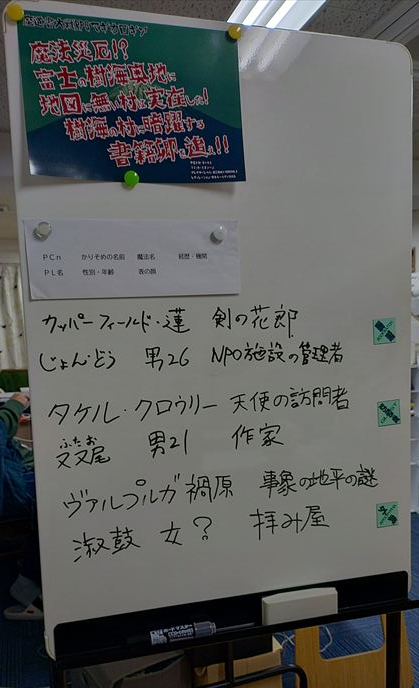 魔道書大戦RPGマギカロギア
魔法災厄!?
富士の樹海奥地に
地図に無い村は実在した!
樹海の村に暗躍する
書籍卿を追え!!
PCn かりそめの名前 魔法名 経歴・機関
PL名 性別・年齢 表の顔
カッパーフィールド・蓮 剣の花郎
じょん・どう 男26 NPO施設の管理者
タケル・クロウリー 天使の訪問者
ふたお
双尾 男21 作家
ヴァルプルガ禍原 事象の地平の謎
淑鼓 女? 拝み屋